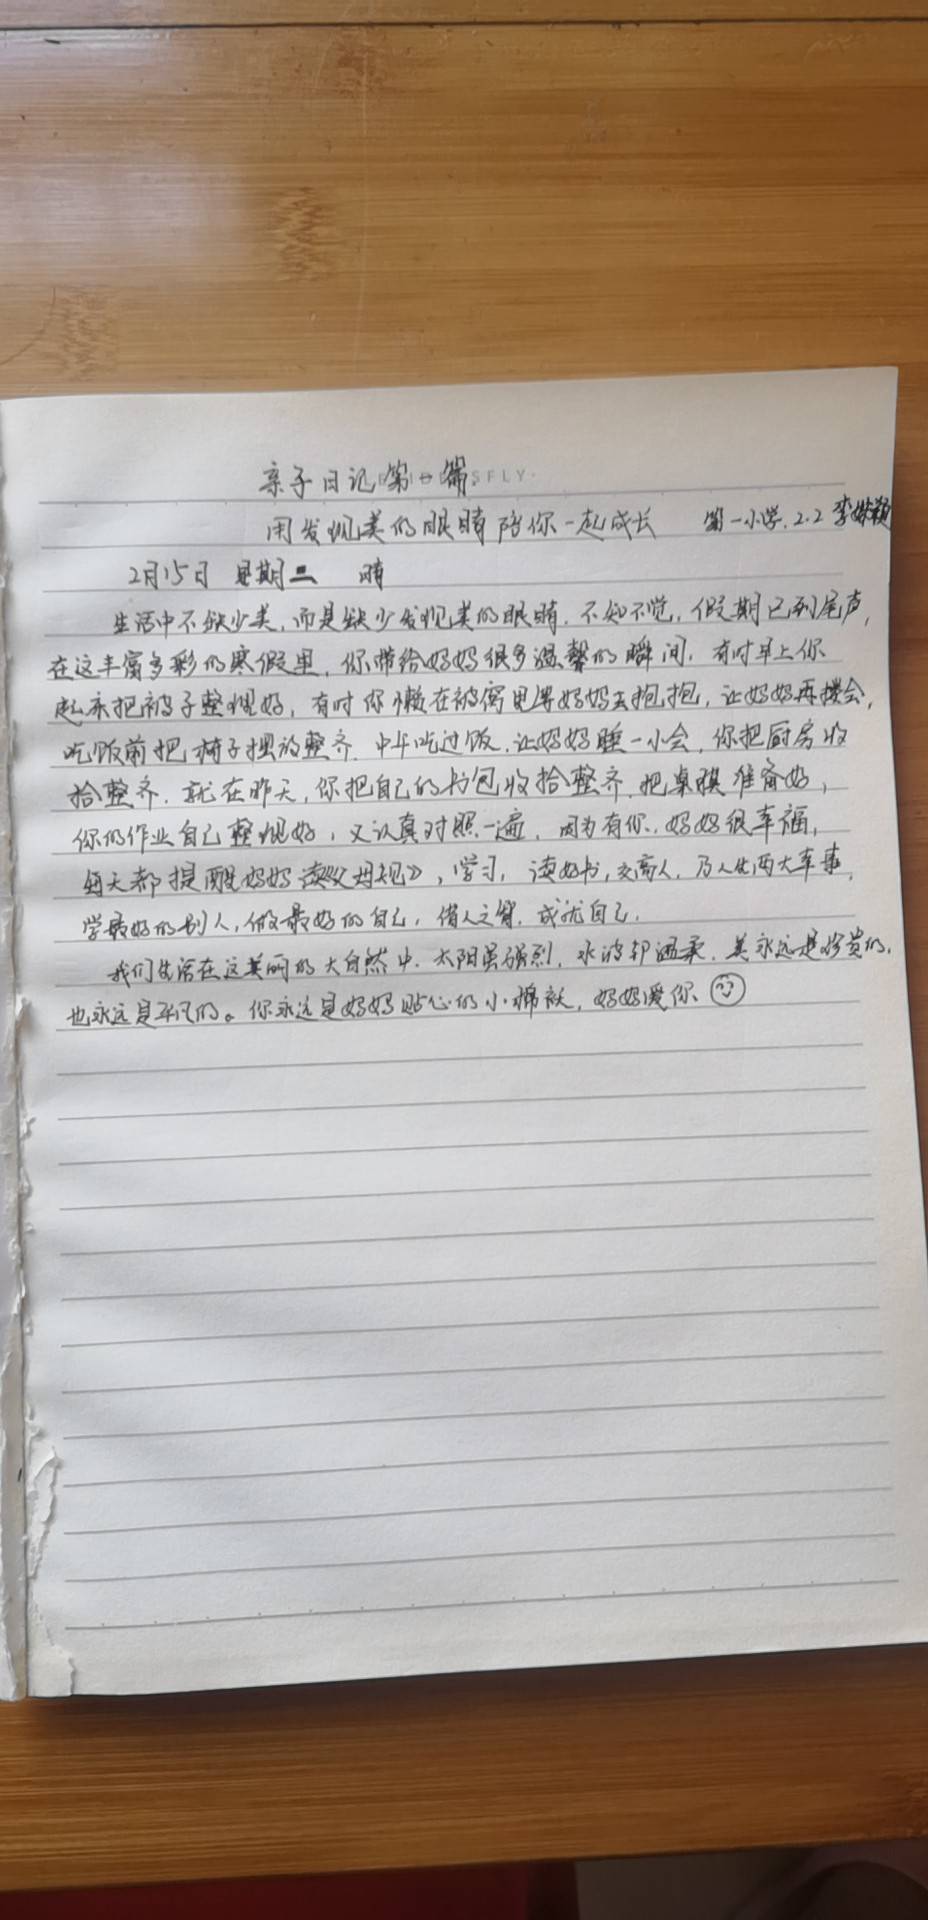 亲子日记第一篇
SFLY·
用发现美的眼睛陪你一起成长 第一小学.2.2 李
2月15日 星期二 晴
生活中不缺少美,而是缺少发现美的眼睛.不知不觉,假期已到尾声,
在这丰富多彩的寒假里,你带给妈妈很多温馨的瞬间.有时早上你
起床把被子整理好,有时你懒在被窝里等妈妈去抱抱,让妈妈再搂会,
吃饭前把椅子摆放整齐.中午吃过饭.让妈妈睡一小会.你把厨房收
拾整齐.就在昨天,你把自己的书包收拾整齐.把桌牌准备好,
你的作业自己整理好,又认真对照一遍.因为有你.妈妈很幸福,
每天都提醒妈妈读《父母规》,学习,读好书,交高人.乃人生两大幸事.
学最好的别人,做最好的自己,借人之智.成就自己.
我们生活在这美丽的大自然中.太阳虽强烈.水波却温柔.美永远是珍贵的.
也永远是平凡的。你永远是妈妈贴心的小棉袄,妈妈爱你